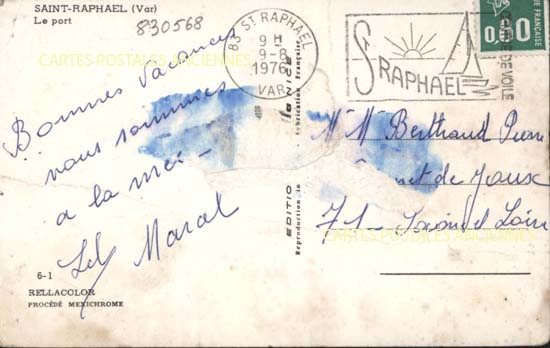 SAINT-RAPHAEL (Var)
Le port
830568
CARTES POSTALES ANCIENNES
83 ST. RAPHAEL
9 H
9-8
1976
VAR
ST RAPHAEL
DE VOILE
0,80
FRANÇAISE
Bonnes Vacances
nous sommes
a la mer
Marcel
M M Berthaud Pierre
71 - Saone et Loire
CARTES POSTALES ANCIENNES
EDITIO
Reproduction in
Fabrication Française
6-1
RELLACOLOR
PROCÉDÉ MEXICHROME